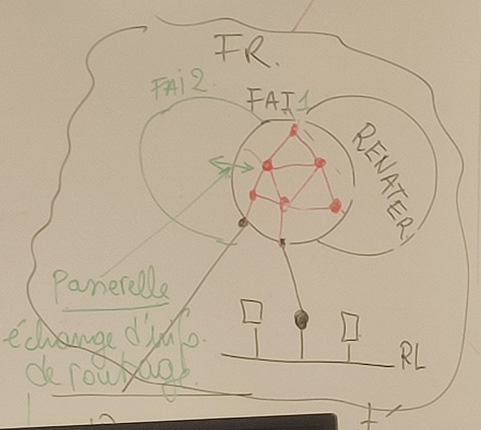 FR.
FAi 2
FAI 1
RENATER
Passerelle
échange d'info.
de routage.
RL